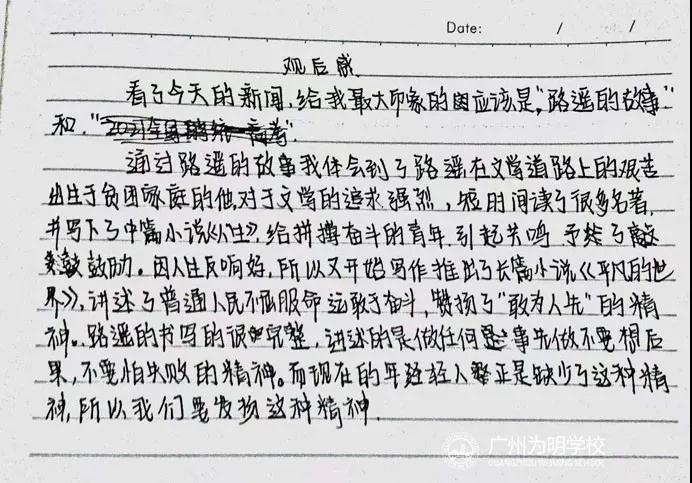 Date: / /
观后感
看了今天的新闻,给我最大印象的因应该是,"路遥的故事"
和,"2021全国 统一高考"
通过路遥的故事我体会到了路遥在文学道路上的艰苦
出生于贫困家庭的他,对于文学的追求强烈,短时间读了很多名著,
并写下了中篇小说《人生》,给拼搏奋斗的青年,引起共鸣 予给了
鼓励。因人生反响好,所以又开始写作推出了长篇小说《平凡的世
界》,讲述了普通人民不屈服命运敢于奋斗,赞扬了"敢为人先"的精
神。路遥的书写的很完整,讲述的是做任何事先做不要想后
果,不要怕失败的精神。而现在的年轻人 正是缺少了这种精
神,所以我们要发扬这种精神.
广州为明学校
GUANGZHOU WEIMING SCHOOL